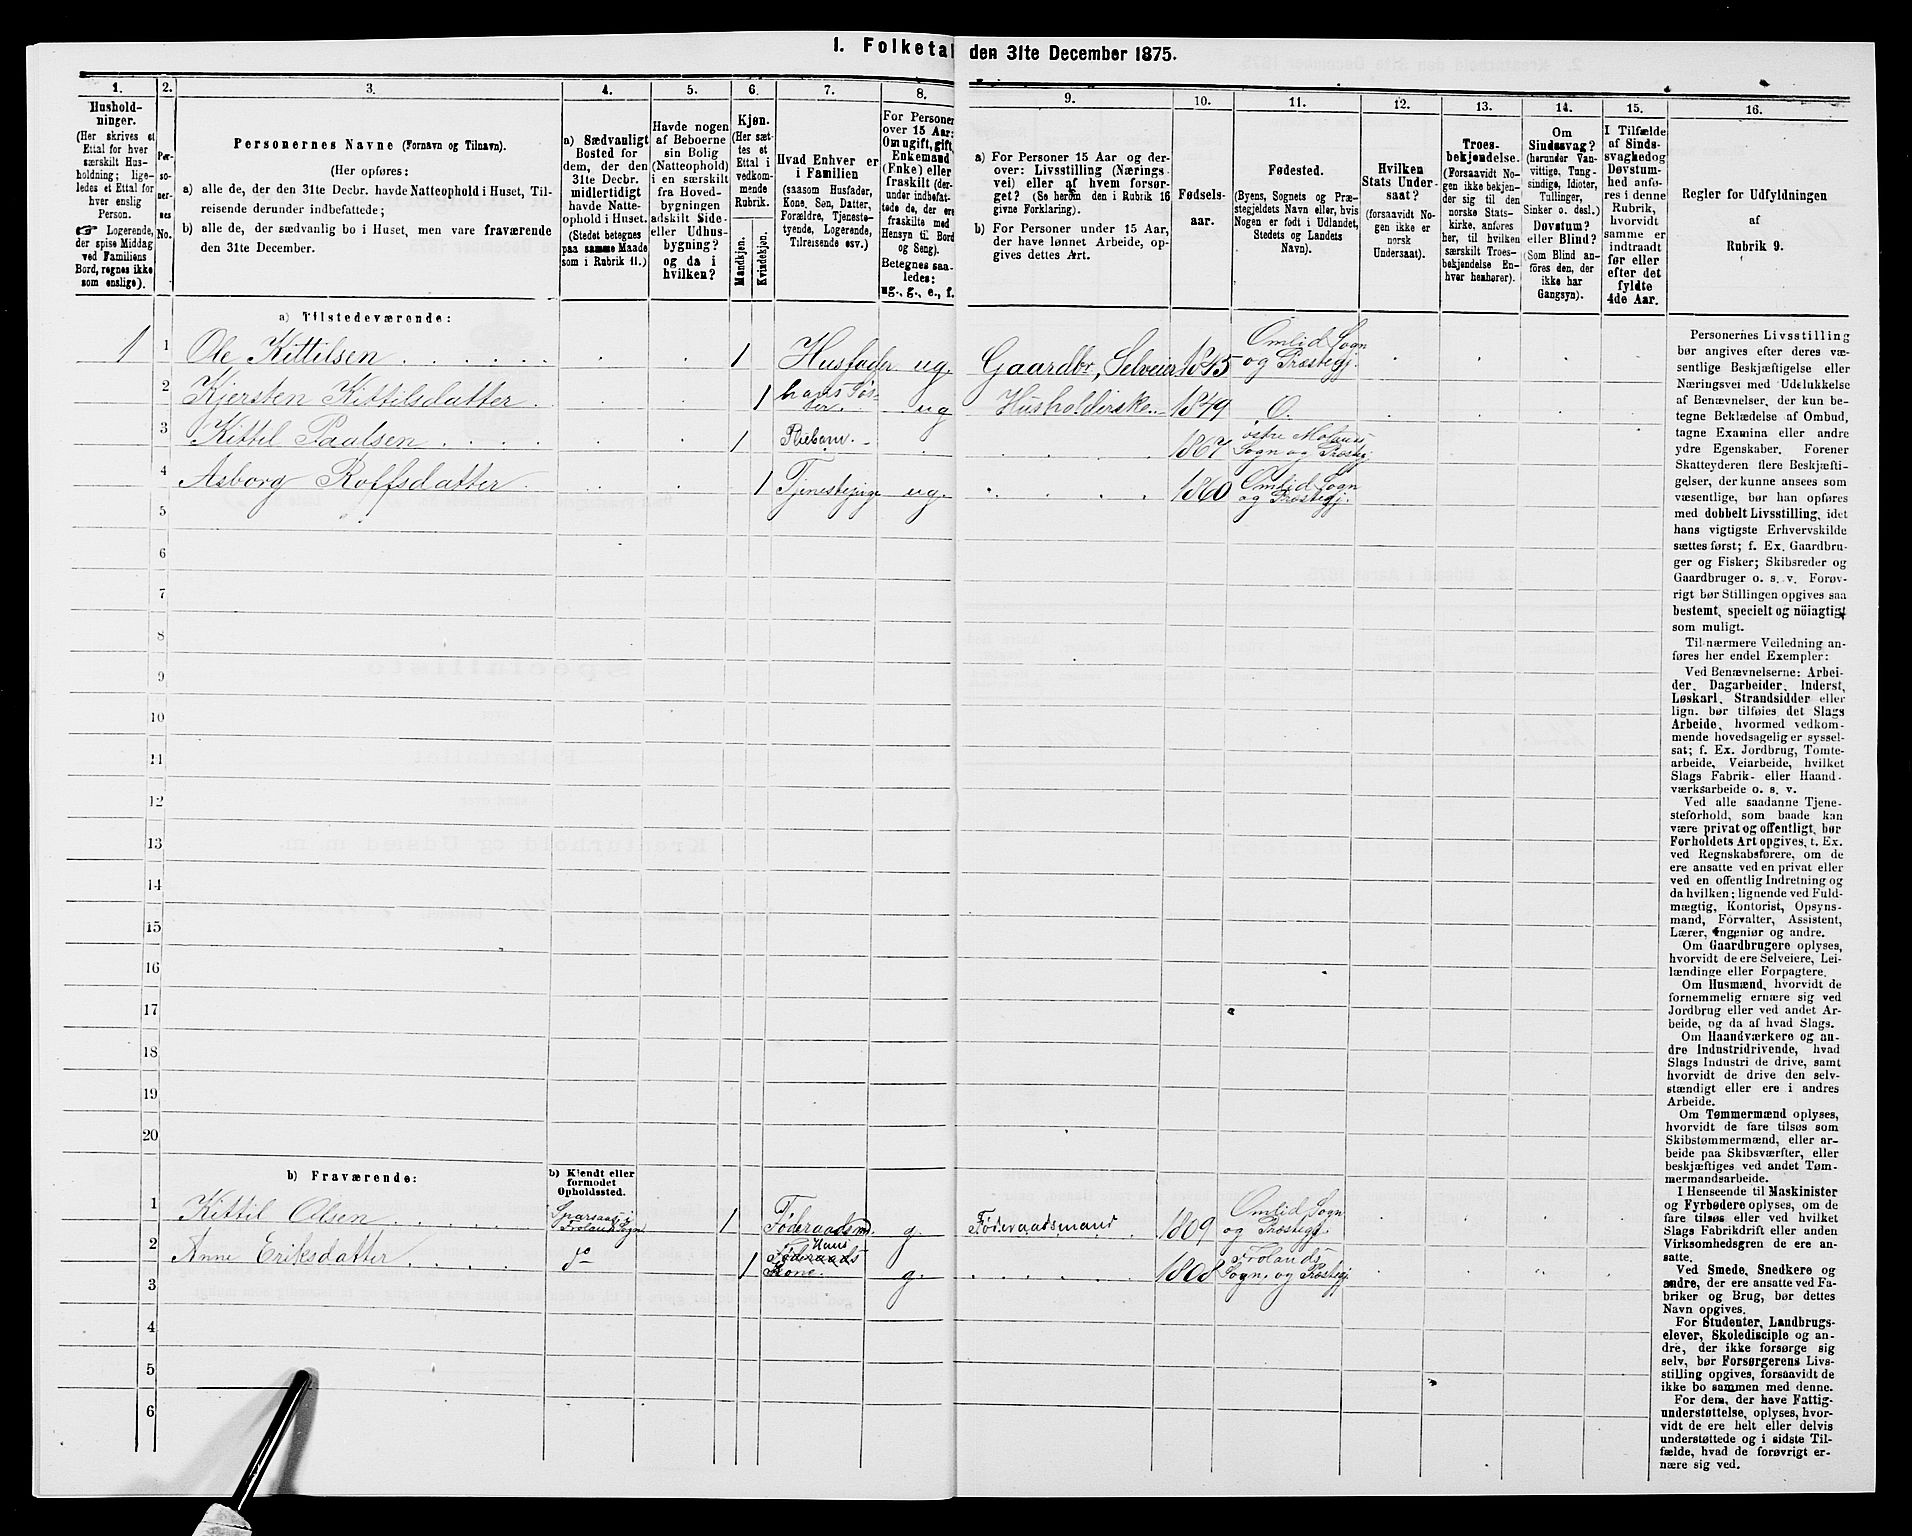 1. Folketal den 31te December 1875.
1. 2. 3. 4. 5. 6. 7. 8. 9. 10. 11. 12. 13. 14. 15. 16.
Hushold-
ninger.
(Her skrives et
Ettal for hver
særskilt Hus-
holdning; lige-
ledes et Ettal for
hver enslig
Person.
☞ Logerende,
der spise Middag
ved Familiens
Bord, regnes ikke
som enslige).
Per-
so-
ner-
nes
No.
Personernes Navne (Fornavn og Tilnavn).
(Her opføres:
a) alle de, der den 31te Decbr. havde Natteophold i Huset, Til-
reisende derunder indbefattede;
b) alle de, der sædvanlig bo i Huset, men vare fraværende
den 31te December.
a) Sædvanligt
Bosted for
dem, der den
31te Decbr.
midlertidigt
havde Natte-
ophold i Huset.
(Stedet betegnes
paa samme Maade
som i Rubrik 11.)
Havde nogen
af Beboerne
sin Bolig
(Natteophold)
i en særskilt
fra Hoved-
bygningen
adskilt Side-
eller Udhus-
bygning?
og da i
hvilken?
Kjøn.
(Her sæt-
tes et
Ettal i
vedkom-
mende
Rubrik.
Mandkjøn.
Kvindekjøn.
Hvad Enhver er
i Familien
(saasom Husfader,
Kone, Søn, Datter,
Forældre, Tjeneste-
tyende, Logerende,
Tilreisende osv.)
For Personer
over 15 Aar:
Om ugift, gift,
Enkemand
(Enke) eller
fraskilt (der-
under indbefat-
tede de, der ere
fraskilte med
Hensyn til Bord
og Seng).
Betegnes saa-
ledes:
ug., g., e., f.
a) For Personer 15 Aar og der-
over: Livsstilling (Nærings-
vei) eller af hvem forsør-
get? (Se herom den i Rubrik 16
givne Forklaring).
b) For Personer under 15 Aar,
der have lønnet Arbeide, op-
gives dettes Art.
Fødsels-
aar.
Fødested.
(Byens, Sognets og Præ-
stegjeldets Navn eller, hvis
Nogen er født i Udlandet,
Stedets og Landets
Navn).
Hvilken
Stats Under-
saat?
(forsaavidt No-
gen ikke er
norsk
Undersaat).
Troes-
bekjendelse.
(Forsaavidt No-
gen ikke bekjen-
der sig til den
norske Stats-
kirke, anføres
her, til hvilken
særskilt Troes-
bekjendelse En-
hver henhører).
Om
Sindssvag?
(herunder Van-
vittige, Tung-
sindige, Idioter,
Tullinger,
Sinker o. desl.)
Døvstum?
eller Blind?
(Som Blind an-
føres den, der
ikke har
Gangsyn).
I Tilfælde
af Sinds-
svaghed og
Døvstum-
hed anfø-
res i denne
Rubrik,
hvorvidt
samme er
indtraadt
før eller
efter det
fyldte
4de Aar.
Regler for Udfyldningen
af
Rubrik 9.
a) Tilstedeværende:
1 1 Ole Kittilsen 1 Husfader ug. Gaardbr, Selveier 1845 Omlid Sogn
og Præstegj.
2 Kjersten Kittilsdatter 1 hans Søs-
ter. ug Husholderske 1849 O.
3 Kittil Paalsen 1 Pleiebarn 1867 østre Molands
Sogn og Præstegj.
4 Asborg Rolfsdatter 1 Tjenestepige ug. 1860 Omlid Sogn
og Præstegj.
5
6
7
8
9
10
11
12
13
14
15
16
17
18
19
20
b) Fraværende:
b) Kjendt eller
formodet
Opholdssted.
1 Kittil Olsen Froland Sogn 1 Føderaadsmd. g. Føderaadsmand 1809 Omlid Sogn
og Præstegj.
2 Anne Eriksdatter do 1 Hans
Føderaads
Kone. g. 1808 Frolands
Sogn og Præstegj.
3
4
5
6
Personernes Livsstilling
bør angives efter deres væ-
sentlige Beskjæftigelse eller
Næringsvei med Udelukkelse
af Benævnelser, der kun be-
tegne Beklædelse af Ombud,
tagne Examina eller andre
ydre Egenskaber. Forener
Skatteyderen flere Beskjæfti-
gelser, der kunne ansees som
væsentlige, bør han opføres
med dobbelt Livsstilling, idet
hans vigtigste Erhvervskilde
sættes først; f. Ex. Gaardbru-
ger og Fisker; Skibsreder og
Gaardbruger o. s. v. Forøv-
rigt bør Stillingen opgives saa
bestemt, specielt og nöiagtigt
som muligt.
Til nærmere Veiledning an-
føres her endel Exempler:
Ved Benævnelserne: Arbei-
der, Dagarbeider, Inderst,
Løskarl, Strandsidder eller
lign. bør tilføies det Slags
Arbeide, hvormed vedkom-
mende hovedsagelig er syssel-
sat; f. Ex. Jordbrug, Tomte-
arbeide, Veiarbeide, hvilket
Slags Fabrik- eller Haand-
værksarbeide o. s. v.
Ved alle saadanne Tjene-
steforhold, som baade kan
være privat og offentligt, bør
Forholdets Art opgives, t. Ex.
ved Regnskabsførere, om de
ere ansatte ved en privat eller
ved en offentlig Indretning og
da hvilken; lignende ved Fuld-
mægtig, Kontorist, Opsyns-
mand, Forvalter, Assistent,
Lærer, Ingeniør og andre.
Om Gaardbrugere oplyses,
hvorvidt de ere Selveiere, Lei-
lændinge eller Forpagtere.
Om Husmænd, hvorvidt de
fornemmelig ernære sig ved
Jordbrug eller ved andet Ar-
beide, og da af hvad Slags.
Om Haandværkere og an-
dre Industridrivende, hvad
Slags Industri de drive, samt
hvorvidt de drive den selv-
stændigt eller ere i andres
Arbeide.
Om Tømmermænd oplyses,
hvorvidt de fare tilsøs som
Skibstømmermænd, eller ar-
beide paa Skibsværfter, eller
beskjæftiges ved andet Tøm-
mermandsarbeide.
I Henseende til Maskinister
og Fyrbødere oplyses, om de
fare tilsøs eller ved hvilket
Slags Fabrikdrift eller anden
Virksomhedsgren de ere an-
satte.
Ved Smede, Snedkere og
andre, der ere ansatte ved Fa-
briker og Brug, bør dettes
Navn opgives.
For Studenter, Landbrugs-
elever, Skoledisciple og an-
dre, der ikke forsørge sig
selv, bør Forsørgerens Livs-
stilling opgives, forsaavidt de
ikke bo sammen med denne.
For dem, der have Fattig-
understøttelse, oplyses, hvor-
vidt de ere helt eller delvis
understøttede og i sidste Til-
fælde, hvad de forøvrigt er-
nære sig ved.